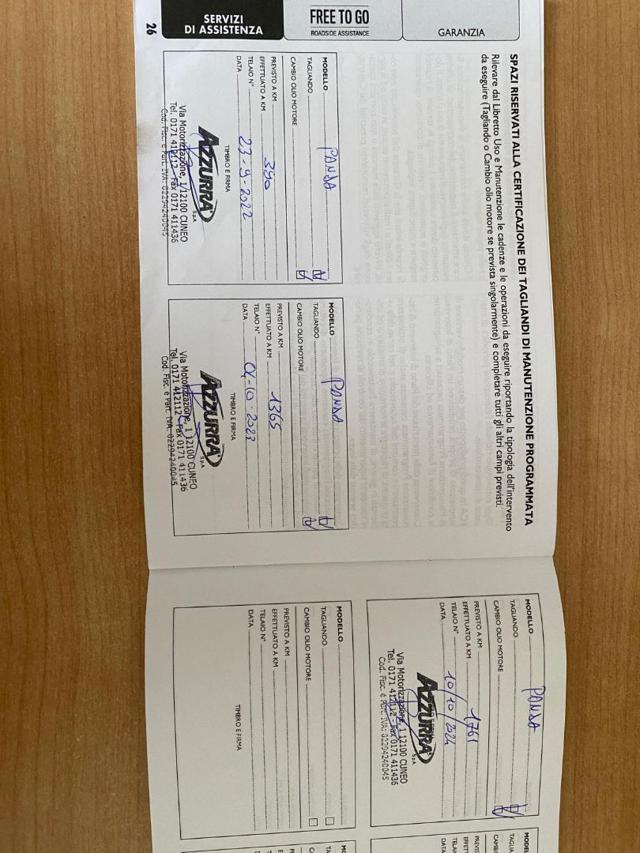 SERVIZI
DI ASSISTENZA
FREE TO GO
ROADSIDE ASSISTANCE
GARANZIA
26
SPAZI RISERVATI ALLA CERTIFICAZIONE DEI TAGLIANDI DI MANUTENZIONE PROGRAMMATA
Rilevare dal Libretto Uso e Manutenzione le cadenze e le operazioni da eseguire riportando la tipologia dell'intervento
da eseguire (Tagliando o Cambio olio motore se prevista singolarmente) e completare tutti gli altri campi previsti.
MODELLO PANDA
TAGLIANDO
CAMBIO OLIO MOTORE
PREVISTO A KM
EFFETTUATO A KM 390
TELAIO N°
DATA 23-9-2022
TIMBRO E FIRMA
AZZURRA SpA
Via Motorizzazione, 1 12100 CUNEO
Tel. 0171 412112 - Fax 0171 411436
Cod. Fisc. e Part. IVA: 02294240045
MODELLO PANDA
TAGLIANDO
CAMBIO OLIO MOTORE
PREVISTO A KM
EFFETTUATO A KM 1365
TELAIO N°
DATA 04-10 2023
TIMBRO E FIRMA
AZZURRA SpA
Via Motorizzazione, 1 12100 CUNEO
Tel. 0171 412112 - Fax 0171 411436
Cod. Fisc. e Part. IVA: 02294240045
MODELLO PANDA
TAGLIANDO
CAMBIO OLIO MOTORE
PREVISTO A KM
EFFETTUATO A KM 1761
TELAIO N°
DATA 10/10/2024
AZZURRA SpA
Via Motorizzazione, 1 12100 CUNEO
Tel. 0171 412112 - Fax 0171 411436
Cod. Fisc. e Part. IVA: 02294240045
MODELLO
TAGLIANDO
CAMBIO OLIO MOTORE
PREVISTO A KM
EFFETTUATO A KM
TELAIO N°
DATA
TIMBRO E FIRMA